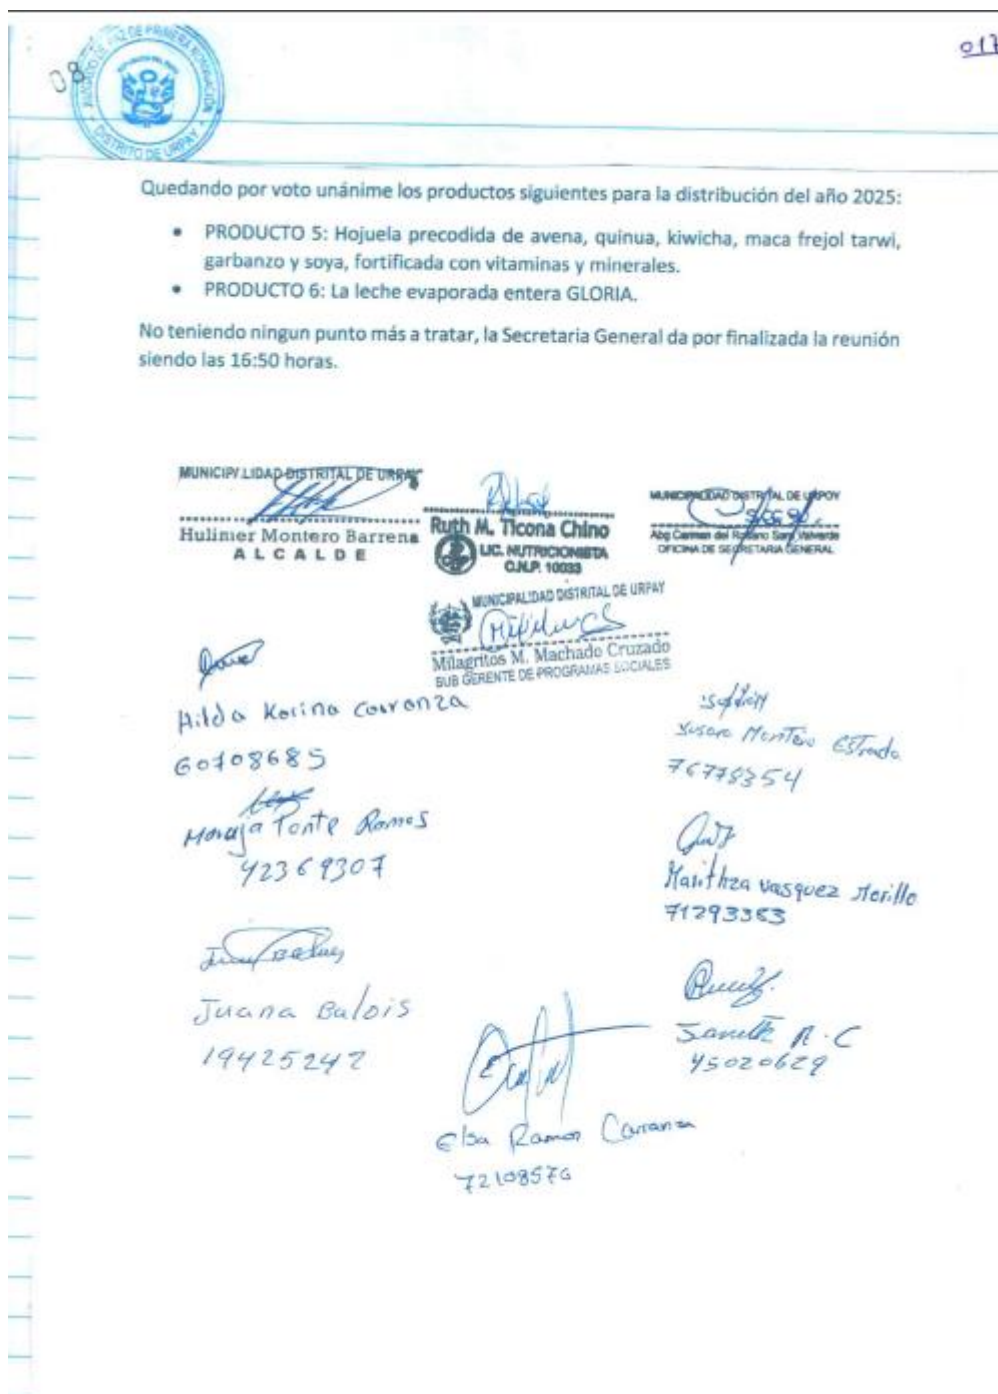 017
08
JUZGADO DE PAZ DE PRIMERA NOMINACIÓN
DISTRITO DE URPAY
Quedando por voto unánime los productos siguientes para la distribución del año 2025:
• PRODUCTO 5: Hojuela precodida de avena, quinua, kiwicha, maca frejol tarwi,
garbanzo y soya, fortificada con vitaminas y minerales.
• PRODUCTO 6: La leche evaporada entera GLORIA.
No teniendo ningun punto más a tratar, la Secretaria General da por finalizada la reunión
siendo las 16:50 horas.
MUNICIPALIDAD DISTRITAL DE URPAY
Hulimer Montero Barrena
ALCALDE
Ruth M. Ticona Chino
LIC. NUTRICIONISTA
C.N.P. 10033
MUNICIPALIDAD DISTRITAL DE URPOY
Abg Carmen del Rosario Valverde
OFICINA DE SECRETARIA GENERAL
MUNICIPALIDAD DISTRITAL DE URPAY
Milagritos M. Machado Cruzado
SUB GERENTE DE PROGRAMAS SOCIALES
Hilda Karina Carranza
60108685
Susana Montero Estrada
76778354
Ponte Ramos
42369307
Marithza Vasquez Morillo
71293353
Juana Balois
19425242
Janeth R.C
45020629
Elsa Ramos Carranza
72108576